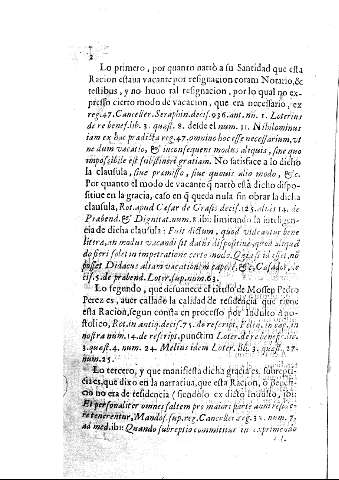 2
Lo primero, por quanto narrò a su Santidad que esta
Racion estaua vacante por resignacion coram Notario, &
testibus, y no huuo tal resignacion, por lo qual no ex-
presso cierto modo de vacacion, que era necessario, ex
reg. 47. Cancell&r. Seraphin. decis. 936. ant. nu. 1. Loterius
de re benef. lib. 3. quæst. 8. desde el num. 31. Nihilominus
iam ex hac prædicta reg. 47. omnino hoc esse necessarium, vt
ne dum vacatio, & inconsequent modus aliquis, siue quo
impossibile est subsistere gratiam. No satisface a lo dicho
la clausula, siue præmisso, siue quouis alio modo, &c.
Por quanto el modo de vacante q̃ narrò està dicho dispo-
sitiue en la gracia, caso q̃ queda nula sin obrar la dicha
clausula, Rot. apud Cesar de Graso. decis. 123. alias 14. de
Præbend. & Dignitat. num. 8 ibi: limitando la inteligen-
cia de dicha clausula: Fuit dictum, quod videantur bene
litteræ, an modus vacandi sit dictus dispositiuè, quod aliquid
do fieri solet in impetratione certo modo.
posset Didacus aliam vacationem
cis. 5. de præbend. Loter. sup. num. 63.
Lo segundo, que desuanece el titulo de Mossen Pedro
Perez es, auer callado la calidad de residencia que tiene
esta Racion, segun consta en processo por Indulto Apo-
stolico, Rot. in antiq. decis. 75. de rescript. Felin. in cap. in
nostra num. 14. de rescript. punctim Loter. de re benef. lib.
3. quæst. 4. num. 24. Melius idem Loter. lib. 3. quæst. 27.
num. 25.
Lo tercero, y que manifiesta dicha gracia es subrepti-
cia es, que dixo en la narratiua, que esta Racion, ò Benefi-
cio no era de residencia (siendolo ex dicto indulto, ibi:
Et personaliter omnes saltem pro maiori parte anni reside-
re tenerentur, Mandos. sup. reg. Cancell&r. reg. 32. num. 7.
ad med. ibi: Quando subreptio committitur in exprimendo